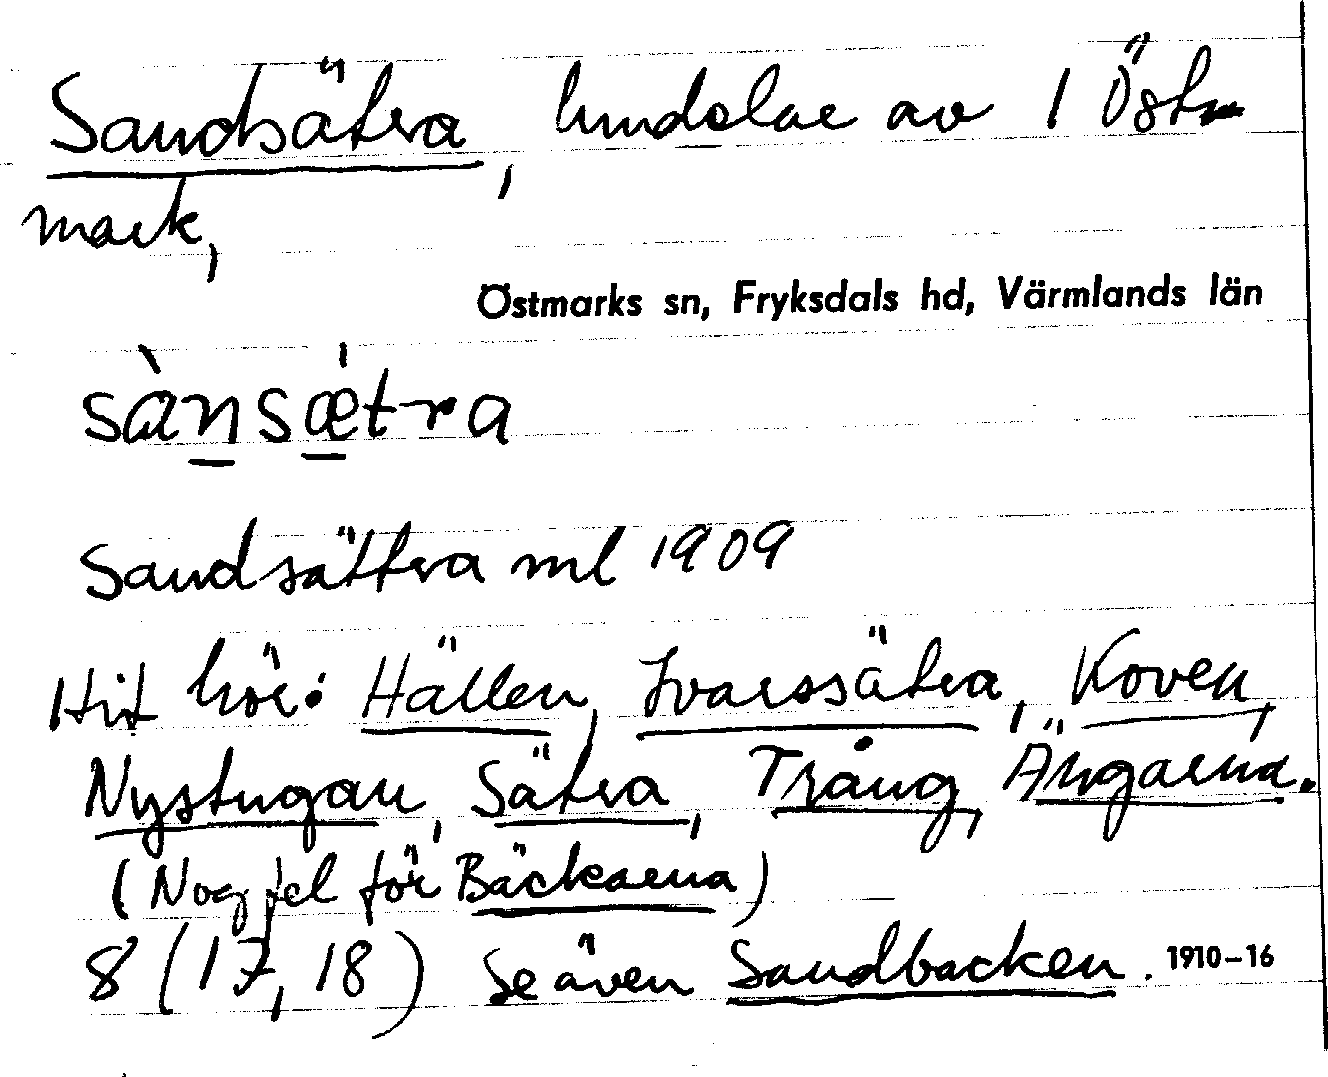 Sandsätra, lundelar av 1 Öst-
mark,
Östmarks sn, Fryksdals hd, Värmlands län
sànsǽtra
Sandsättra ml 1909
Hit hör: Hällen, Ivarssätra, Koven,
Nystugan, Sätra, Trång, Ängarna.
(Nog fel för Bäckarna)
8 (17, 18) Se även Sandbacken. 1910-16